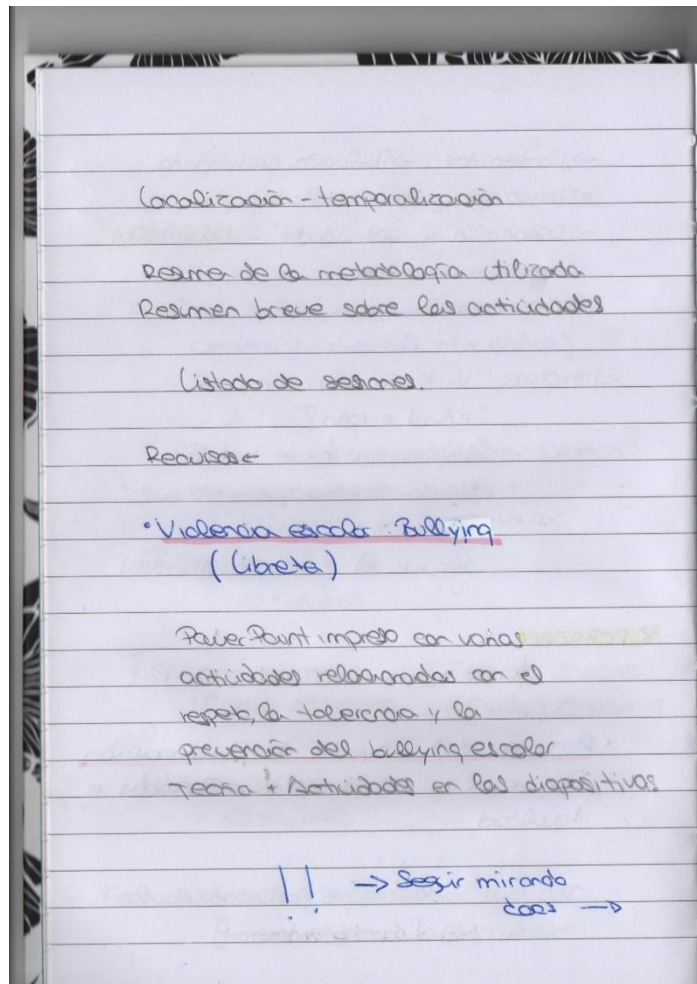 Localización - temporalización
Resume de la metodología utilizada
Resumen breve sobre las actividades
Listado de sesiones.
Recursos ←
• Violencia escolar. Bullying
(Libreta)
PowerPoint impreso con varias
actividades relacionadas con el
respeto, la tolerancia y la
prevención del bullying escolar
Teoría + Actividades en las diapositivas
!! → Seguir mirando
docs →